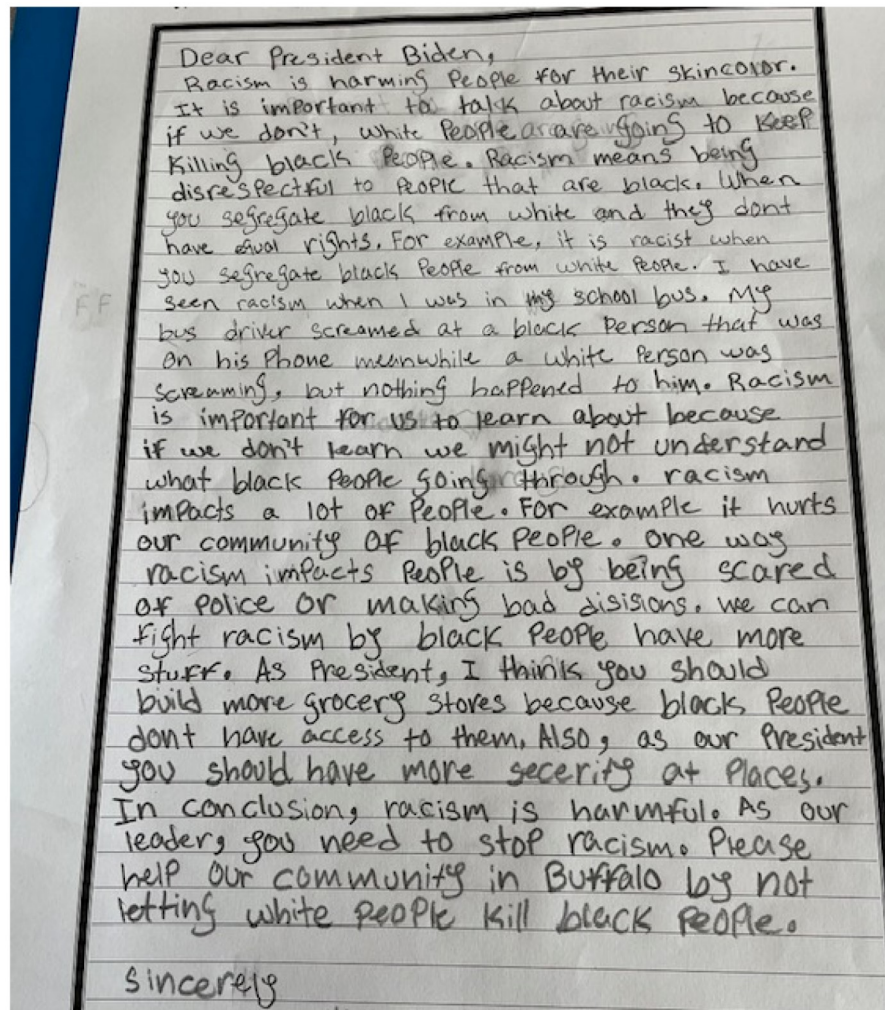 Dear President Biden,
Racism is harming People for their skincolor.
It is important to talk about racism because
if we don't, white People are going to keep
Killing black People. Racism means being
disrespectful to People that are black. When
you segregate black from white and they dont
have equal rights. For example, it is racist when
you segregate black People from white People. I have
seen racism when I was in my school bus. My
bus driver screamed at a black Person that was
on his Phone meanwhile a white Person was
screaming, but nothing happened to him. Racism
is important for us to learn about because
if we don't learn we might not understand
what black People going through. racism
impacts a lot of People. For example it hurts
our community of black People. one way
racism impacts People is by being scared
of Police or making bad disisions. we can
fight racism by black People have more
stuff. As President, I think you should
build more grocery stores because black People
dont have access to them. Also, as our President
you should have more secerity at Places.
In conclusion, racism is harmful. As our
leader, you need to stop racism. Please
help our community in Buffalo by not
letting white People Kill black People.
Sincerely
FF